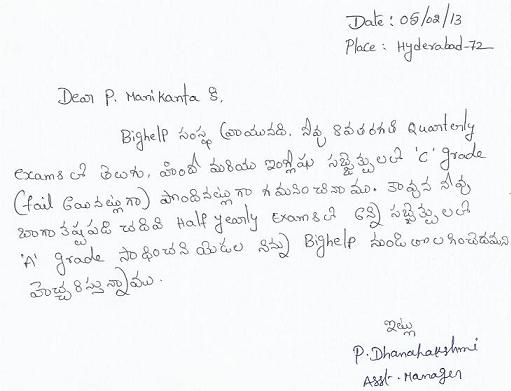 Date : 05/02/13
Place : Hyderabad-72
Dear P. Manikanta కి,
Bighelp సంస్థ వ్రాయునది. నీవు 8వతరగతి Quarterly
exams లో తెలుగు, హింది మరియు ఇంగ్లీషు సబ్జెక్ట్సులలో 'C' grade
(fail అయినట్లుగా) పొందినట్లుగా గమనించినాము. కావున నీవు
బాగా కష్టపడి చదివి Half yearly Exams లో అన్ని సబ్జెక్ట్సులలో
'A' grade సాధించని యెడల నిన్ను Bighelp నుండి తొలగించెదమని
హెచ్చరిస్తున్నాము.
ఇట్లు
P. Dhanalakshmi
Asst. Manager